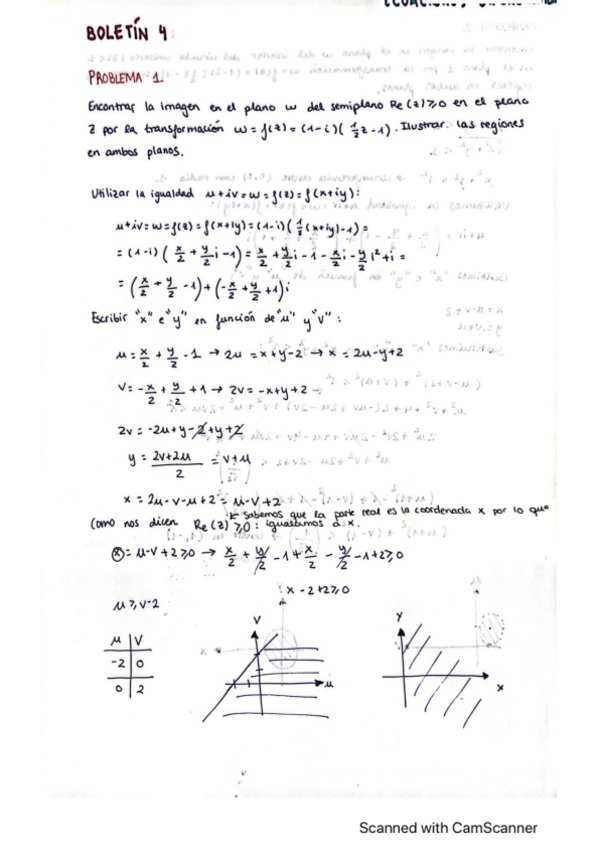 BOLETÍN 4:
PROBLEMA 1.
Encontrar la imagen en el plano w del semiplano Re(z) ≥ 0 en el plano
z por la transformación w = f(z) = (1-i)(1/2 z - 1). Ilustrar las regiones
en ambos planos.
Utilizar la igualdad u+iv = w = f(z) = f(x+iy):
u+iv = w = f(z) = f(x+iy) = (1-i)(1/2(x+iy)-1) =
= (1-i)(x/2 + y/2 i - 1) = x/2 + y/2 i - 1 - x/2 i - y/2 i² + i =
= (x/2 + y/2 - 1) + (-x/2 + y/2 + 1)i
Escribir "x" e "y" en función de "u" y "v":
u = x/2 + y/2 - 1 → 2u = x+y-2 → x = 2u-y+2
v = -x/2 + y/2 + 1 → 2v = -x+y+2
2v = -2u+y-2+y+2
y = 2v+2u/2 = v+u
x = 2u-v-u+2 = u-v+2
* Sabemos que la parte real es la coordenada x por lo que
Como nos dicen Re(z) ≥ 0: igualamos a x.
x = u-v+2 ≥ 0 → x/2 + y/2 - 1 + x/2 - y/2 - 1 + 2 ≥ 0
x - 2 + 2 ≥ 0
u ≥ v-2
u v
-2 0
0 2
v
u
y
x
Scanned with CamScanner